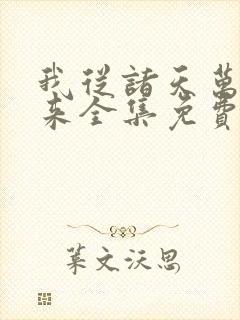 我從諸天萬
來全集免費
葉文沃思